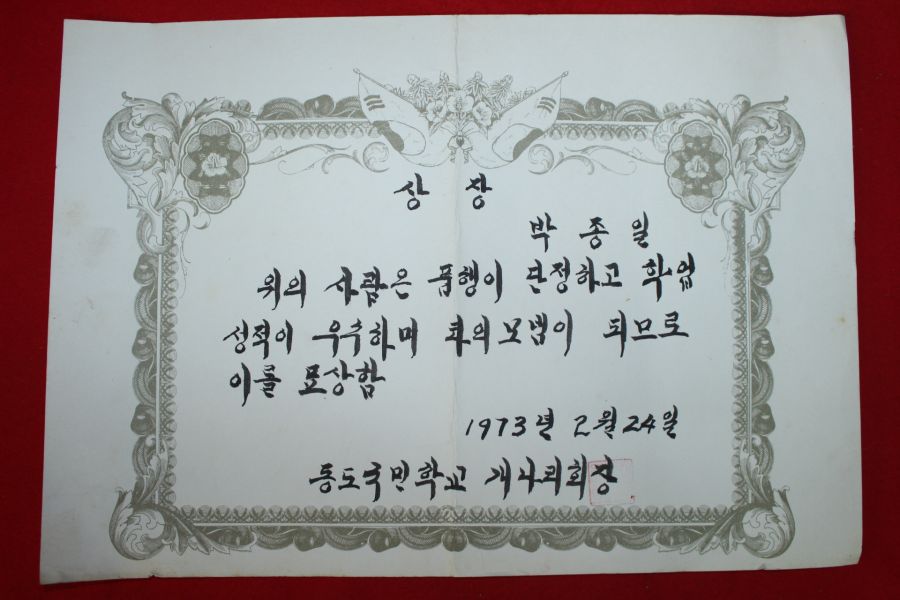 상장
박종일
위의 사람은 품행이 단정하고 학업
성적이 우수하며 타의모범이 되므로
이를 표상함
1973년 2월 24일
동도국민학교 회장